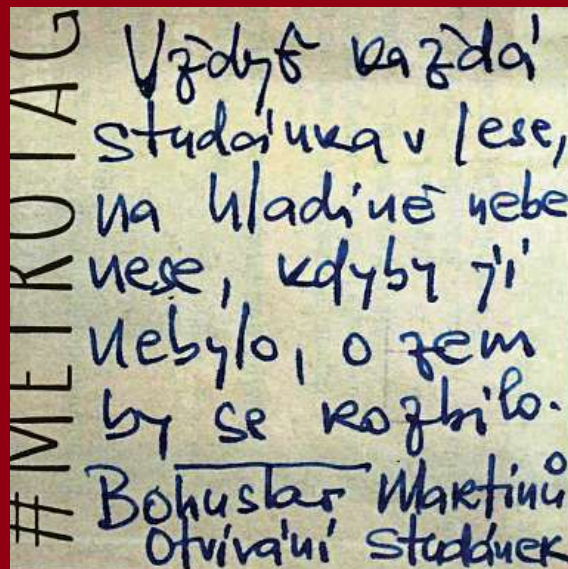 #METROTAG
Vždyť každá
studánka v lese,
na hladině nebe
nese, kdyby jí
nebylo, o zem
by se rozbilo.
Bohuslav Martinů
Otvírání studánek